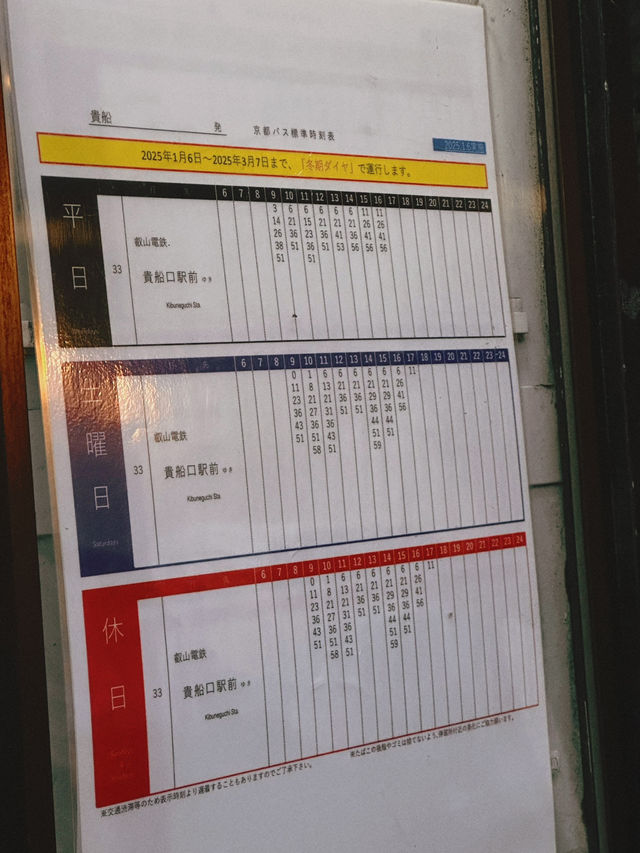 貴船 発 京都バス標準時刻表
2025.1.6実施
2025年1月6日～2025年3月7日まで、「冬期ダイヤ」で運行します。
平日
Weekdays
6 7 8 9 10 11 12 13 14 15 16 17 18 19 20 21 22 23 24
33
叡山電鉄.
貴船口駅前 ゆき
Kibuneguchi Sta.
3 6 6 6 6 6 11 11
14 21 15 21 21 21 26 26
26 36 23 36 41 36 41 41
38 51 36 51 53 56 56 56
51 51
土曜日
Saturdays
6 7 8 9 10 11 12 13 14 15 16 17 18 19 20 21 22 23 24
33
叡山電鉄
貴船口駅前 ゆき
Kibuneguchi Sta.
0 1 6 6 6 6 6 6 11
11 8 13 21 21 21 21 26
23 21 21 36 36 29 29 41
36 27 31 51 51 36 36 56
43 36 36 44 44
51 51 43 51 51
58 51 59
休日
6 7 8 9 10 11 12 13 14 15 16 17 18 19 20 21 22 23 24
33
叡山電鉄
貴船口駅前 ゆき
Kibuneguchi Sta.
0 1 6 6 6 6 6 6 11
11 8 13 21 21 21 21 26
23 21 21 36 36 29 29 41
36 27 31 51 51 36 36 56
43 36 36 44 44
51 51 43 51 51
58 51 59
※交通渋滞等のため表示時刻より遅着することもありますのでご了承下さい。
※たばこの吸殻やゴミは捨てないよう、停留所付近の美化にご協力願います。